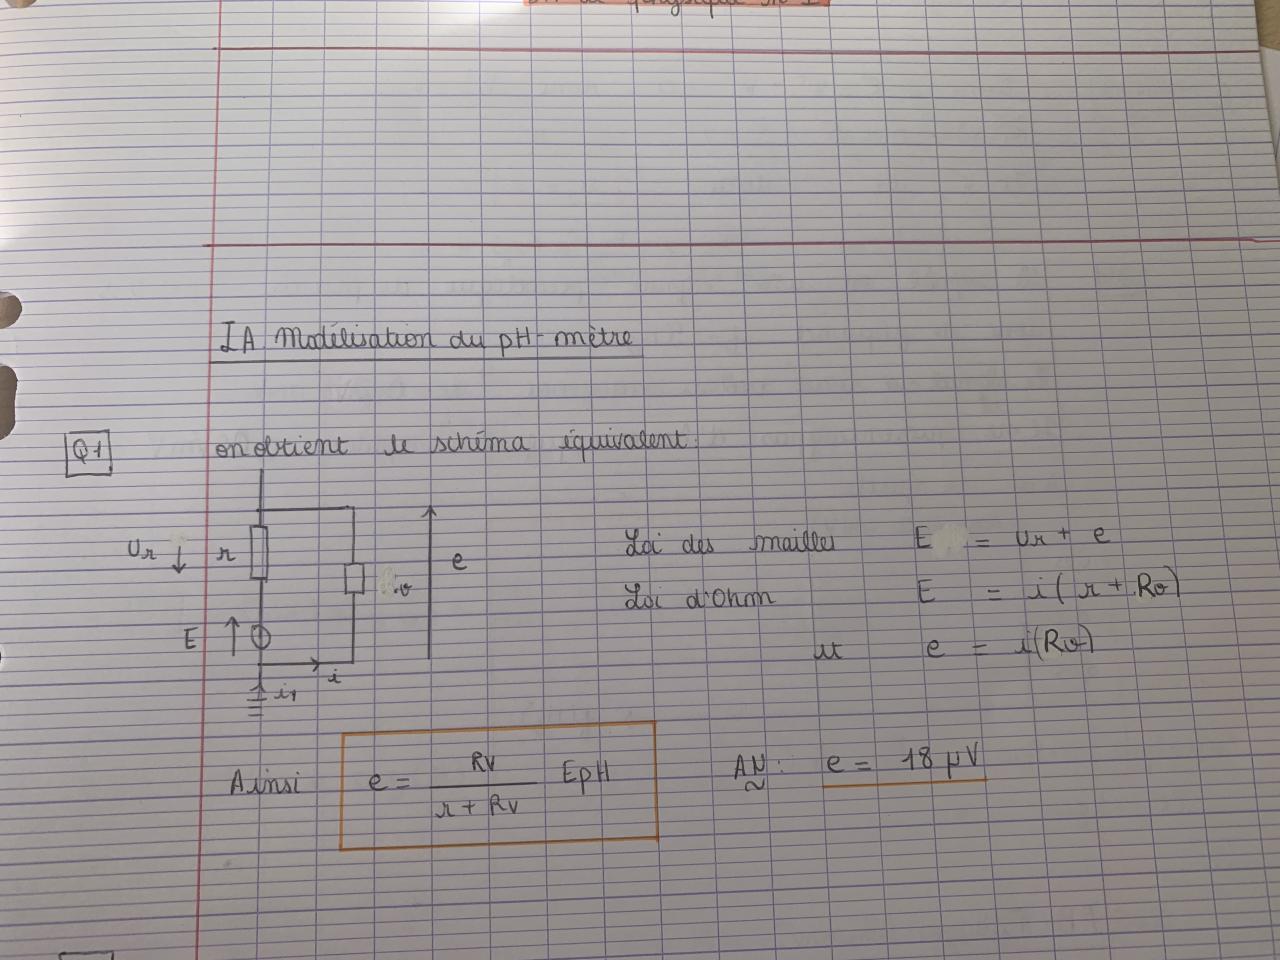 IA Modélisation du pH-mètre
Q1
on obtient le schéma équivalent.
Ur
r
e
E
i
i1
Loi des mailles E = Ur + e
Loi d'Ohm E = i(r + Rv)
et e = i(Rv)
Ainsi e = RV / r + RV EpH
AN : e = 18 μV